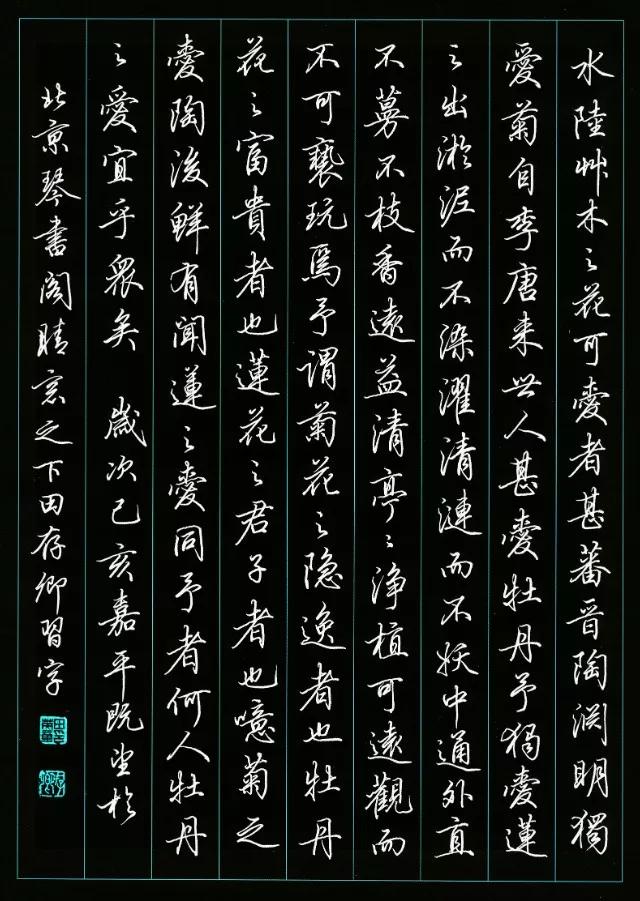 水陸艸木之花可愛者甚蕃晉陶淵明獨
愛菊自李唐来世人甚愛牡丹予獨愛蓮
之出淤泥而不染濯清漣而不妖中通外直
不蔓不枝香遠益清亭〻淨植可遠觀而
不可褻玩焉予謂菊花之隐逸者也牡丹
花之富貴者也蓮花之君子者也噫菊之
愛陶後鮮有聞蓮之愛同予者何人牡丹
之愛宜乎衆矣 歲次己亥嘉平既望於
北京琴書阁晴窓之下田存卿習字